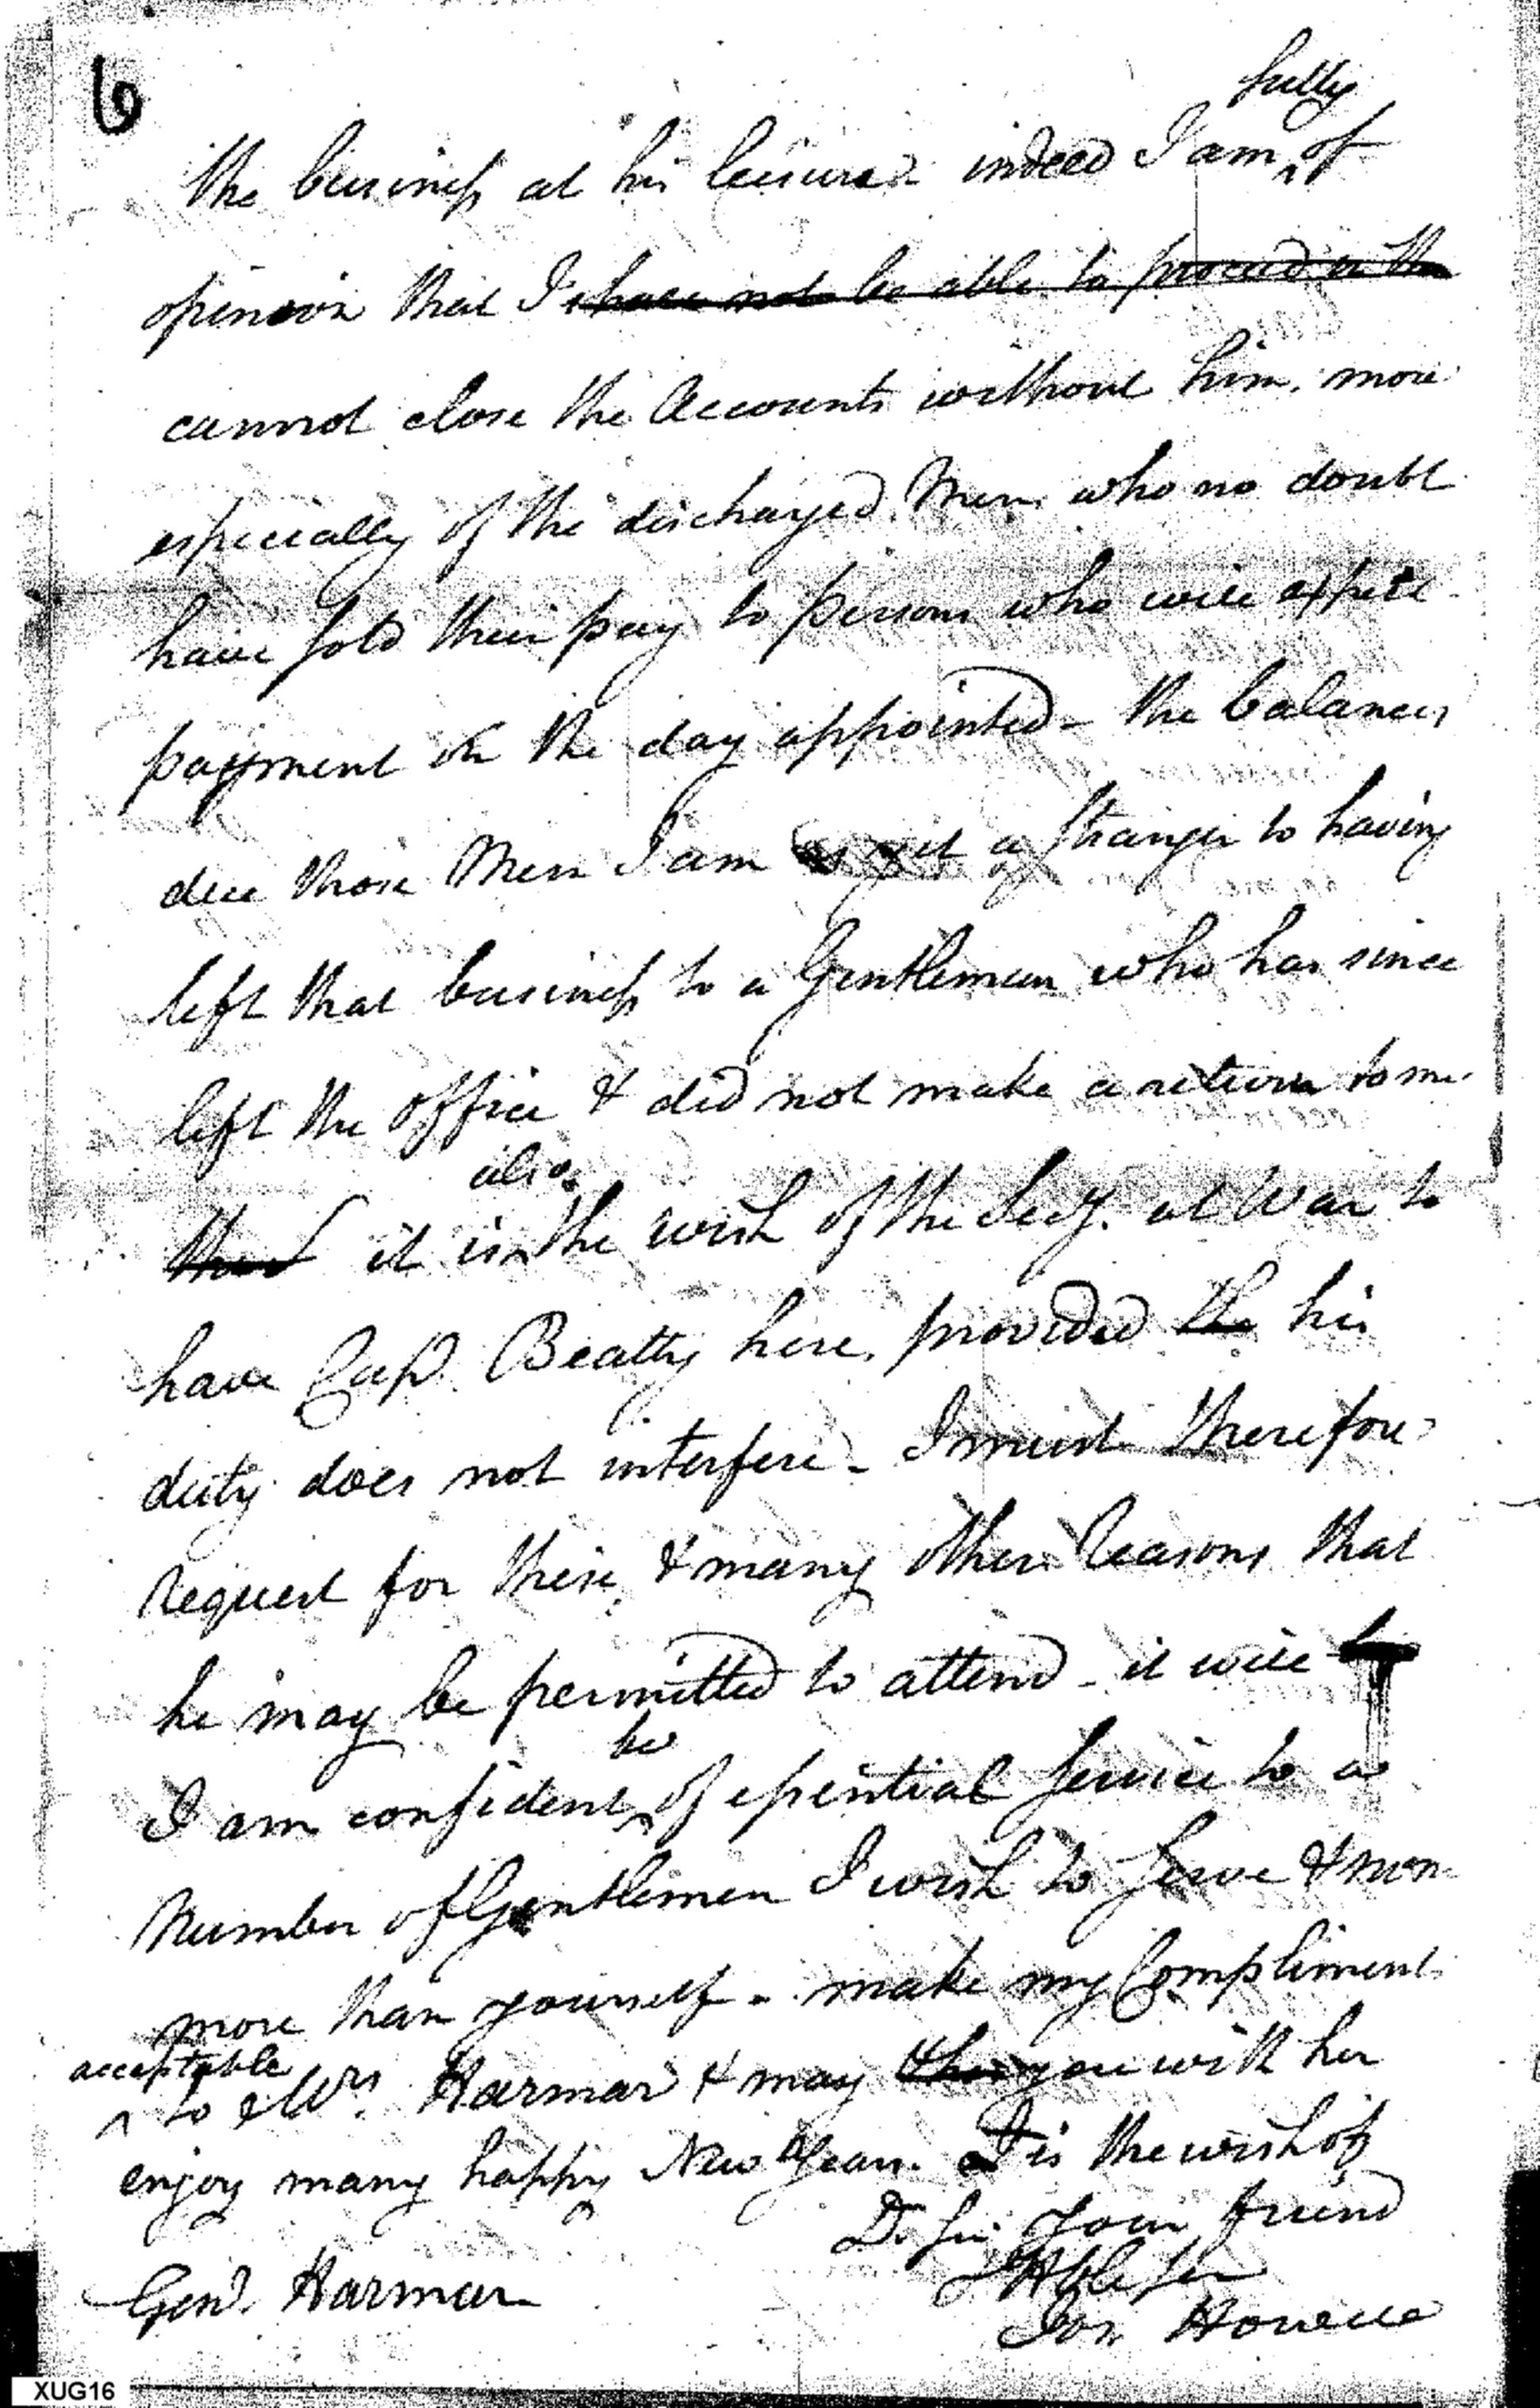 6
fully
the business at his leisure indeed I am ^ of
opinion that I shall not be able to proceed in the
cannot close the Accounts without him, more
especially of the discharged Men who no doubt
have sold their pay to persons who will expect
payment on the day appointed - the balances
due those Men I am as yet a stranger to having
left that business to a Gentleman who has since
left the office & did not make a return to me.
also
it is ^ the wish of the Secy. at War to
have Cap. Beatty here, provided the his
duty does not interfere - I must therefore
request for these & many other reasons that
he may be permitted to attend - it will
be
I am confident ^ of essential service to a
number of Gentlemen I wish to serve & non
more than yourself - make my Compliments
acceptable
^ to Mrs. Harmar & may you with her
enjoy many happy New Years. It is the wish of
D. Sir Your friend
& Hble Ser
Genl. Harmar
Jos. Howell
XUG16